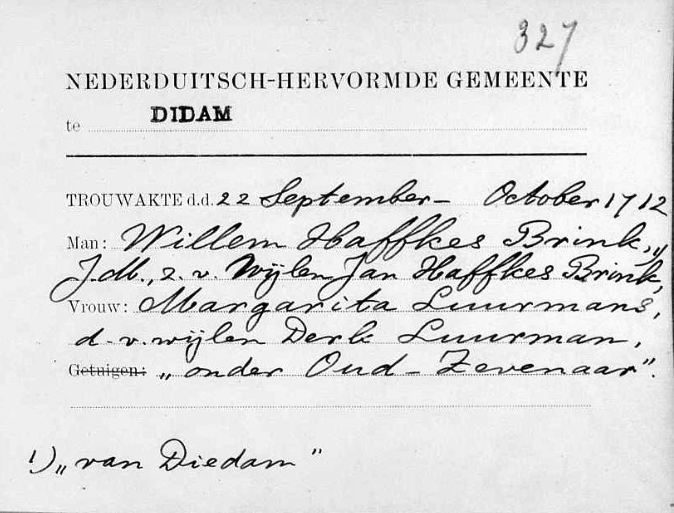 327
NEDERDUITSCH-HERVORMDE GEMEENTE
te DIDAM
TROUWAKTE d.d. 22 September - October 1712
Man: Willem Haffkes Brink, 1)
J.M., z. v. Wijlen Jan Haffkes Brink,
Vrouw: Margarita Luurmans,
d. v. wijlen Derk Luurman,
Getuigen: „onder Oud-Zevenaar".
1) „van Diedam"